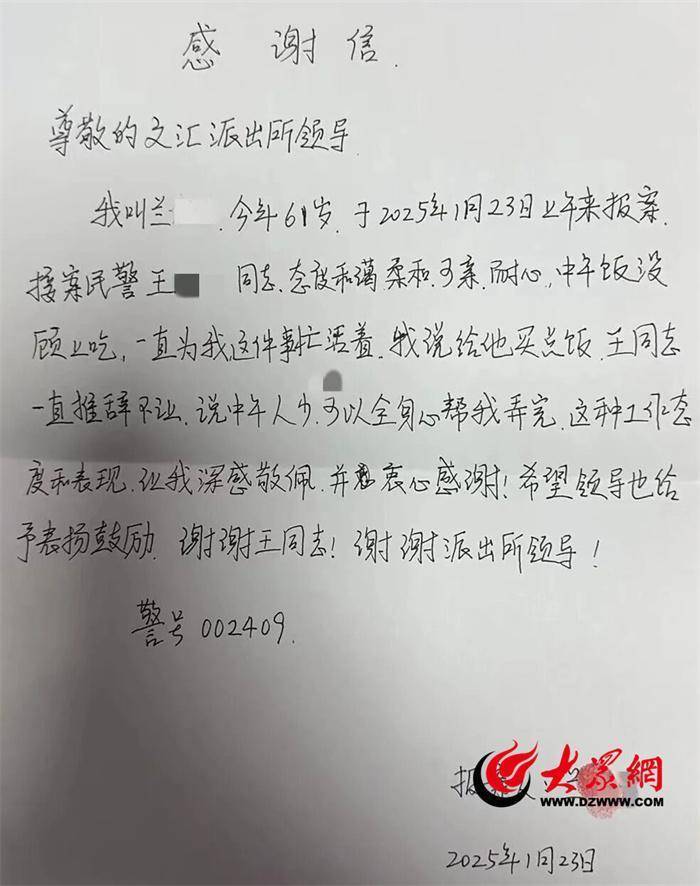 感谢信.
尊敬的文汇派出所领导
我叫兰 .今年61岁.于2025年1月23日上午来报案.
接案民警王 同志.态度和蔼柔和.可亲.耐心,中午饭没
顾上吃,一直为我这件事忙活着.我说给他买点饭.王同志
一直推辞不让.说中午人少.可以全身心帮我弄完.这种工作态
度和表现.让我深感敬佩.并 衷心感谢!希望领导也给
予表扬鼓励.谢谢王同志!谢谢派出所领导!
警号002409.
报案
大众網
WWW.DZWWW.COM
2025年1月23日